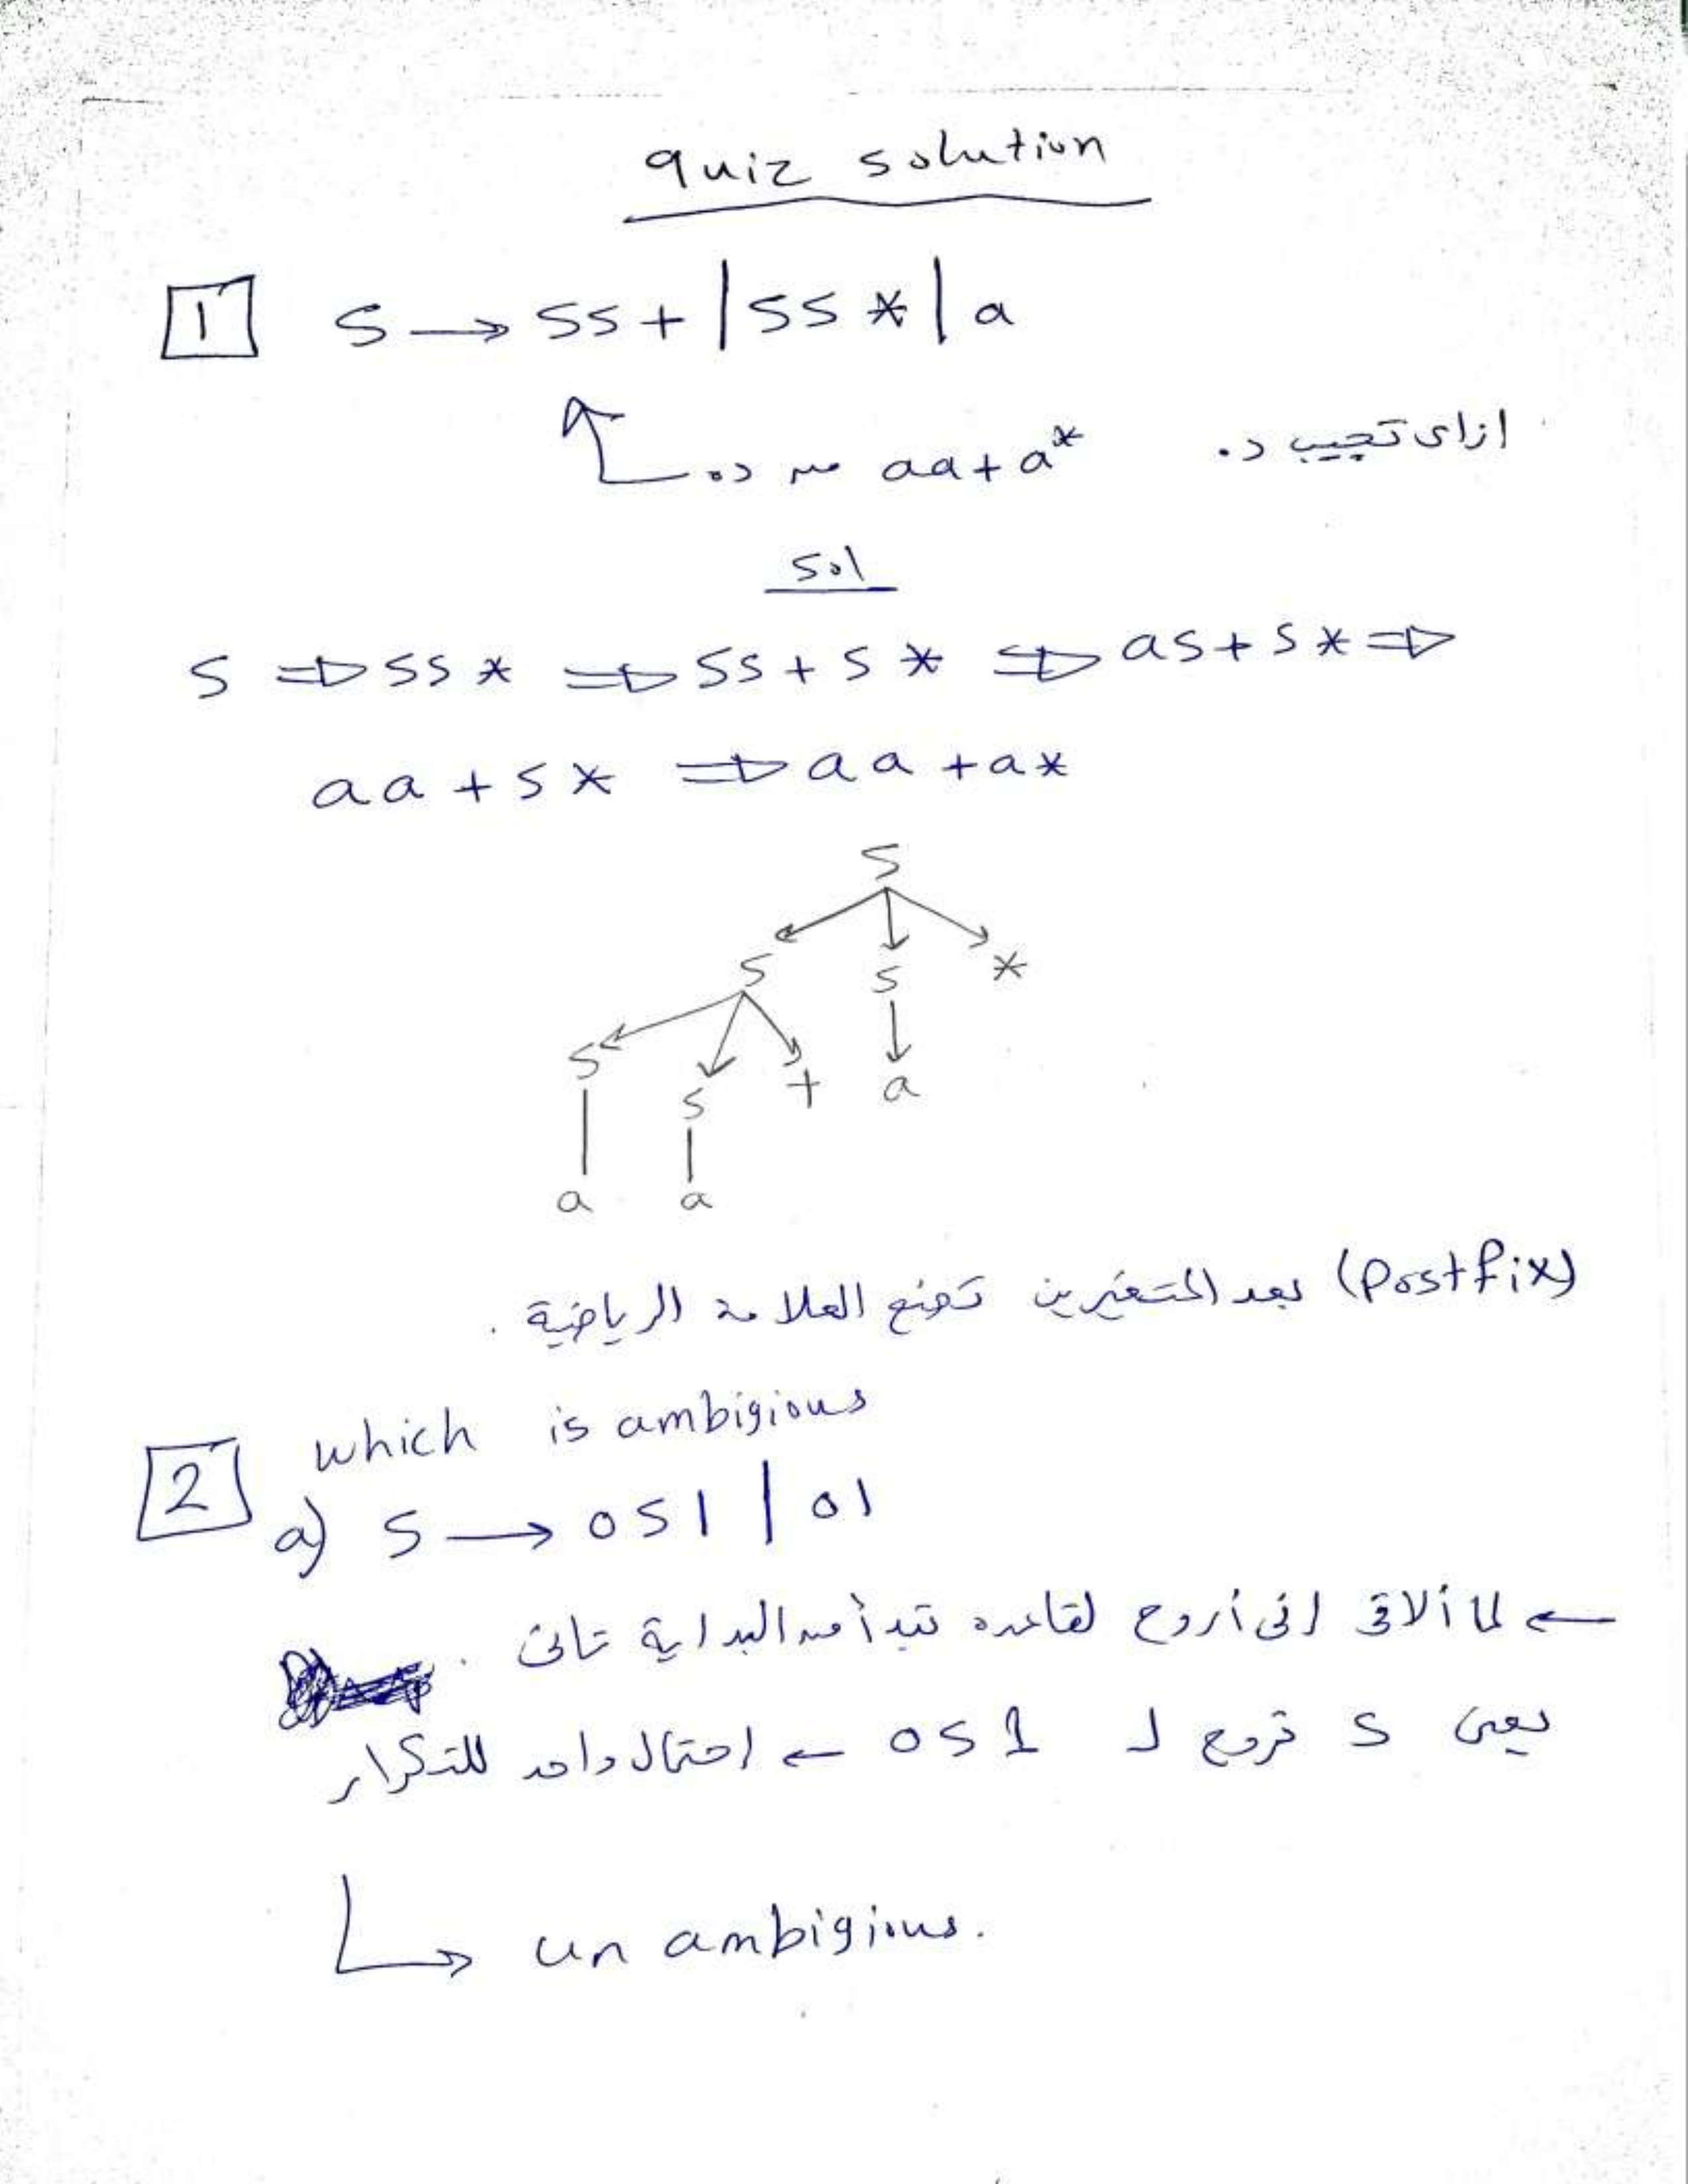 quiz solution
1 S → SS+ | SS* | a
ازاى تجيب د. aa+a* من ده
Sol
S ⇒ SS* ⇒ SS+S* ⇒ aS+S* ⇒
aa+S* ⇒ aa+a*
S
S S *
S S + a
a a
(Postfix) بعد المتغيرين تضع العلامة الرياضية .
which is ambigious
2 a) S → 0S1 | 01
← لما ألاقى انى أروح لقاعده تبدأ من البداية تانى .
يعنى S تروح لـ 0S1 ← احتمال واحد للتكرار
↳ un ambigious.